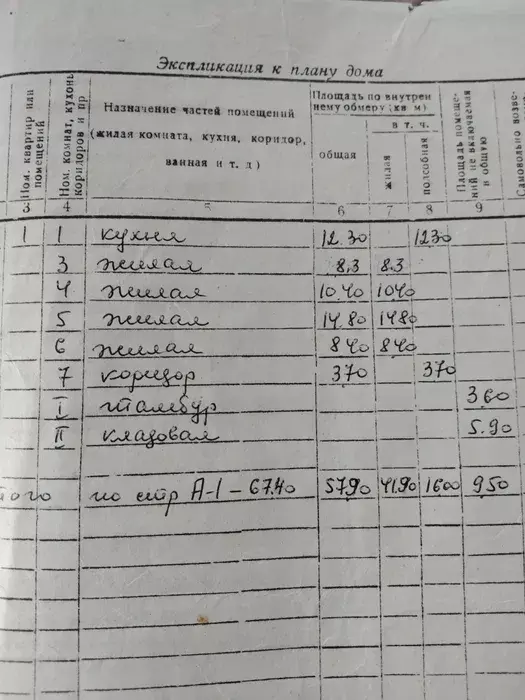 Экспликация к плану дома
Ном. квартир или помещений
Ном. комнат, кухонь коридоров и пр
Назначение частей помещений
(жилая комната, кухня, коридор,
ванная и т. д)
Площадь по внутрен
нему обмеру (кв м)
общая
в т. ч.
жилая
подсобная
Площадь помеще-
ний не включаемая
в общую
Самовольно возве-
3 4 5 6 7 8 9
1 1 кухня 12.30 1230
3 жилая 8,3 8.3
4 жилая 1040 1040
5 жилая 14.80 1480
6 жилая 840 840
7 коридор 370 370
I тамбур 360
II кладовая 5.90
того по стр А-1 - 67.40 5790 41.90 1600 950